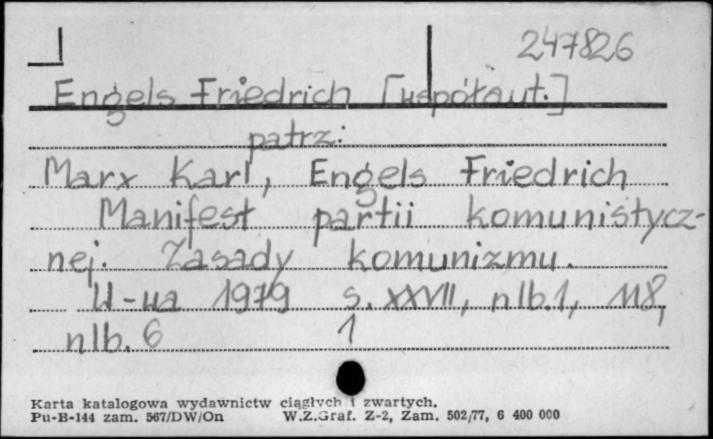 247826
Engels Friedrich [współaut.]
patrz:
Marx Karl, Engels Friedrich
Manifest partii komunistycz-
nej. Zasady komunizmu.
W-wa 1979 s. XXVII, nlb.1, 118,
nlb. 6 1
Karta katalogowa wydawnictw ciągłych i zwartych.
Pu-B-144 zam. 567/DW/On W.Z.Graf. Z-2, Zam. 502/77, 6 400 000